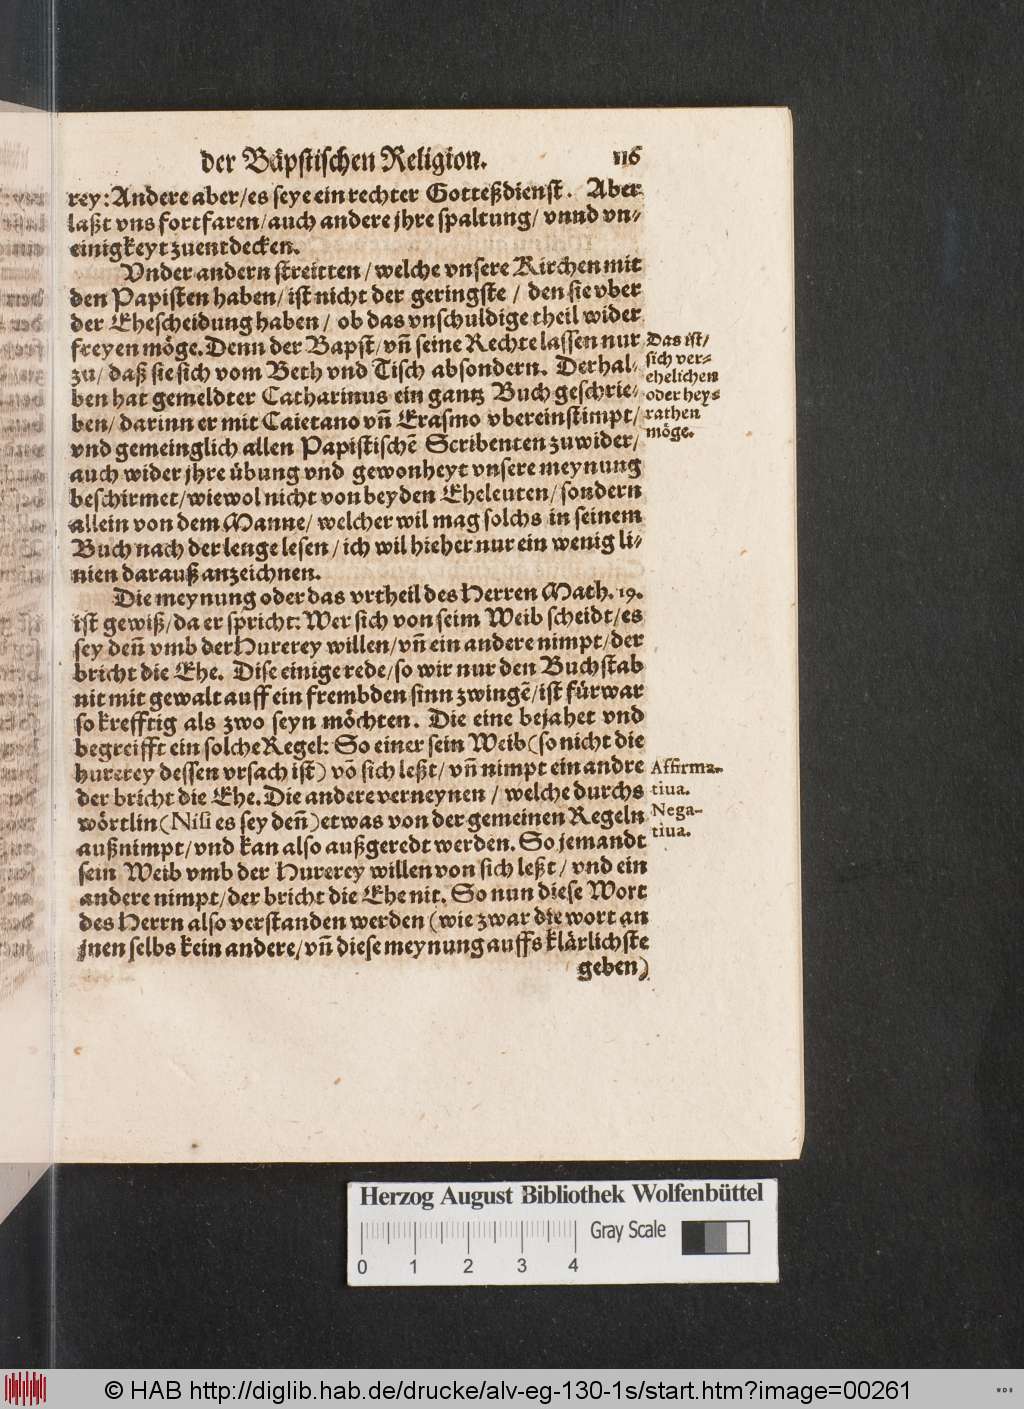 der Bäpstischen Religion. 116
rey: Andere aber/ es seye ein rechter Gotteßdienst. Aber
laßt vns fortfaren/ auch andere jhre spaltung/ vnnd vn-
einigkeyt zuentdecken.
Vnder andern streitten/ welche vnsere Kirchen mit
den Papisten haben/ ist nicht der geringste/ den sie vber
der Ehescheidung haben/ ob das vnschuldige theil wider
freyen möge. Denn der Bapst/ vñ seine Rechte lassen nur
zu/ daß sie sich vom Beth vnd Tisch absondern. Derhal-
ben hat gemeldter Catharinus ein gantz Buch geschrie-
ben/ darinn er mit Caietano vñ Erasmo vbereinstimpt/
vnd gemeinglich allen Papistischẽ Scribenten zuwider/
auch wider jhre übung vnd gewonheyt vnsere meynung
beschirmet/ wiewol nicht von beyden Eheleuten/ sondern
allein von dem Manne/ welcher wil mag solchs in seinem
Buch nach der lenge lesen/ ich wil hieher nur ein wenig li-
nien darauß anzeichnen.
Das ist/
sich ver-
ehelichen
oder hey-
rathen
möge.
Die meynung oder das vrtheil des Herren Math. 19.
ist gewiß/ da er spricht: Wer sich von seim Weib scheidt/ es
sey deñ vmb der Hurerey willen/ vñ ein andere nimpt/ der
bricht die Ehe. Dise einige rede/ so wir nur den Buchstab
nit mit gewalt auff ein frembden sinn zwingẽ/ ist fürwar
so krefftig als zwo seyn möchten. Die eine bejahet vnd
begreifft ein solche Regel: So einer sein Weib (so nicht die
hurerey dessen vrsach ist) võ sich leßt/ vñ nimpt ein andre
der bricht die Ehe. Die andere verneynen/ welche durchs
wörtlin (Nisi es sey deñ) etwas von der gemeinen Regeln
außnimpt/ vnd kan also außgeredt werden. So jemandt
sein Weib vmb der Hurerey willen von sich leßt/ vnd ein
andere nimpt/ der bricht die Ehe nit. So nun diese Wort
des Herrn also verstanden werden (wie zwar die wort an
jnen selbs kein andere/ vñ diese meynung auffs klärlichste
geben)
Affirma-
tiua.
Nega-
tiua.
Herzog August Bibliothek Wolfenbüttel
Gray Scale
0 1 2 3 4
© HAB http://diglib.hab.de/drucke/alv-eg-130-1s/start.htm?image=00261